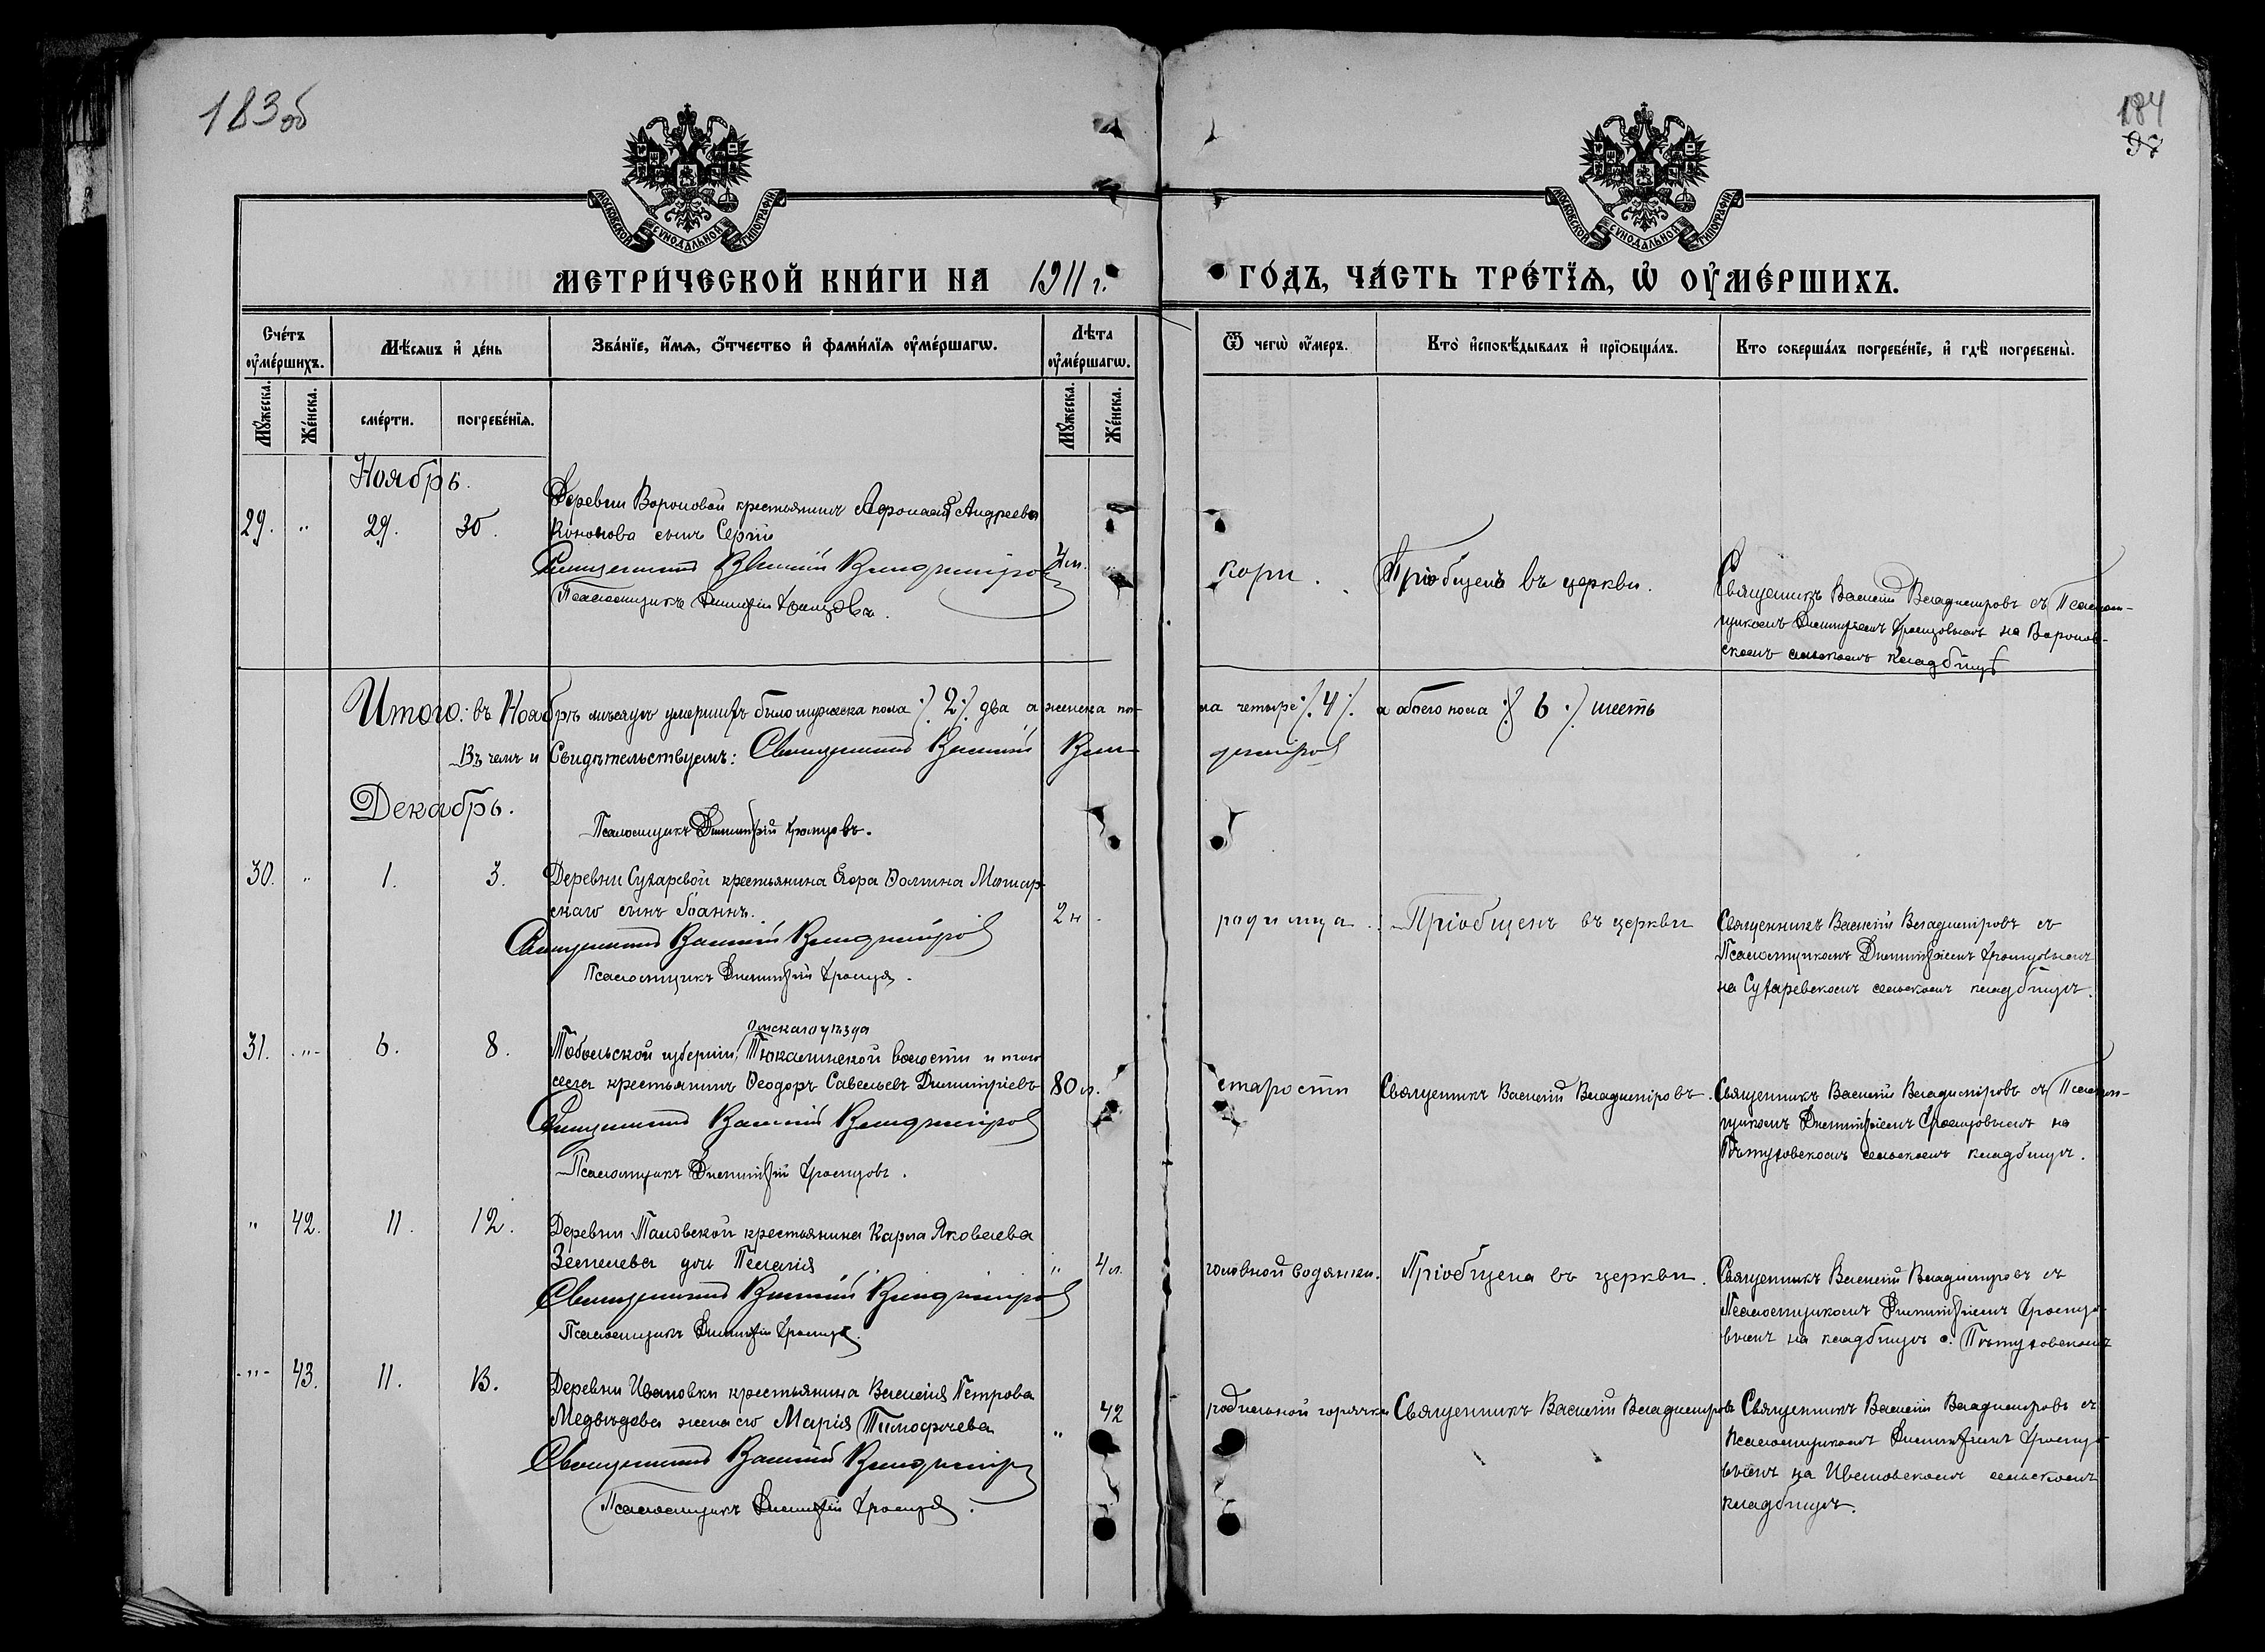 183об
184
97
МОСКОВСКОЙ СѴНОДАЛЬНОЙ ТИПОГРАФІИ
МОСКОВСКОЙ СѴНОДАЛЬНОЙ ТИПОГРАФІИ
МЕТРИ́ЧЕСКОЙ КНИ́ГИ НА 1911 г. ГО́ДЪ, ЧА́СТЬ ТРЕ́ТІЯ, Ѡ҆ ОУ҆МЕ́РШИХЪ.
Сче́тъ оу҆ме́ршихъ.
Мѣ́сяцъ и҆ де́нь
Зва́нїе, и҆́мѧ, ѻ҆́тчество и҆ фами́лїѧ оу҆ме́ршагѡ.
Лѣ́та оу҆ме́ршагѡ.
Ѿ чегѡ̀ оу҆́меръ.
Кто̀ и҆сповѣ́дывалъ и҆ прїѡбща́лъ.
Кто соверша́лъ погребе́нїе, и҆ гдѣ̀ погребены̀.
Мꙋ́жеска.
Же́нска.
сме́рти.
погребе́нїѧ.
Мꙋ́жеска.
Же́нска.
Ноябрь.
29. " 29. 30. Деревни Вороновой крестьянина Афонасія Андреева
Кононова сынъ Сергій
Священникъ Василій Владиміров
Псаломщикъ Димитрій Храмцовъ.
кори. Пріобщенъ въ церкви.
Священникъ Василій Владиміровъ съ Псалом-
щикомъ Димитріемъ Храмцовымъ на Воронов-
скомъ сельскомъ кладбищѣ
Итого: въ Ноябрѣ мѣсяцѣ умершихъ было мужеска пола ./. 2 ./. два а женска по-
ла четыре ./. 4 ./. а обоего пола ./. 6 ./. шесть
Въ чемъ и Свидѣтельствуемъ: Священникъ Василій Вла-
диміров
Декабрь.
Псаломщикъ Димитрій Храмцовъ.
30. " 1. 3. Деревни Сухаревой крестьянина Егора Ѳомина
скаго сынъ Іоаннъ. 2 н
Священникъ Василій Владиміров
Псаломщикъ Димитрій Храмцов.
родимца. Пріобщенъ въ церкви
Священникъ Василій Владиміровъ съ
Псаломщикомъ Димитріемъ Храмцовымъ
на Сухаревскомъ сельскомъ кладбищѣ.
31. " 6. 8. Тобольской губерніи, Омскаго уѣзда Тюкалинской волости и того
села крестьянинъ Ѳеодоръ Савельевъ Димитріевъ 80 л.
Священникъ Василій Владиміров
Псаломщикъ Димитрій Храмцовъ.
старости Священникъ Василій Владиміровъ.
Священникъ Василій Владиміровъ съ Псалом-
щикомъ Димитріемъ Храмцовымъ на
Пѣтуховскомъ сельскомъ кладбищѣ.
" 42. 11. 12. Деревни Паловской крестьянина Карпа Яковлева
дочь Пелагія " 4 л.
Священникъ Василій Владиміров
Псаломщикъ Димитрій Храмцов.
головной водянки. Пріобщена въ церкви.
Священникъ Василій Владиміровъ съ
Псаломщикомъ Димитріемъ Храмцо-
вымъ на кладбищѣ с. Пѣтуховскомъ
" 43. 11. 13. Деревни Ивановки крестьянина Василія Петрова
Медвѣдева жена его Марія Тимофѣева " 42
Священникъ Василій Владиміров
Псаломщикъ Димитрій Храмцов.
родильной горячки Священникъ Василій Владиміровъ
Священникъ Василій Владиміровъ съ
Псаломщикомъ Димитріемъ Храмцо-
вымъ на Ивановскомъ сельскомъ
кладбищѣ.